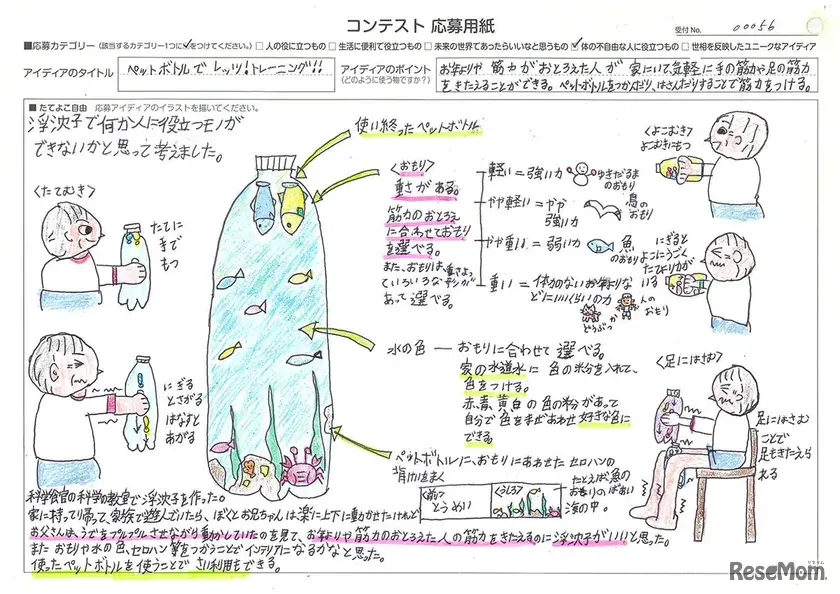 コンテスト 応募用紙
受付 No. 00056
■応募カテゴリー (該当するカテゴリー1つに✓をつけてください。) □ 人の役に立つもの □ 生活に便利で役立つもの □ 未来の世界であったらいいなと思うもの ☑ 体の不自由な人に役立つもの □ 世相を反映したユニークなアイディア
アイディアのタイトル ペットボトルでレッツ!トレーニング!!
アイディアのポイント (どのように使う物ですか?)
お年よりや筋力がおとろえた人が家にいて気軽に手の筋力や足の筋力
をきたえることができる。ペットボトルをつかんだり、はさんだりすることで筋力をつける。
■たてよこ自由 応募アイディアのイラストを描いてください。
浮沈子で何か人に役立つモノが
できないかと思って考えました。
使い終ったペットボトル
<たてむき>
たてに
きで
もつ
<おもり>
重さがある。
筋力のおとろえ
に合わせておもり
を選べる。
また、おもりは、重さによって
いろいろな形が
あって選べる。
軽い=強い力 ゆきだるまのおもり
やや軽い=やや強い力 鳥のおもり
やや重い=弱い力 魚のおもり
重い=体力のないお年よりな
どうぶつか
人の
おもり
<よこむき>
よこむきにもつ
にぎると
よこにうごく
たてより力が
いる
にぎる
とさがる
はなすと
あがる
水の色 ― おもりに合わせて選べる。
家の水道水に色の粉を入れて、
色をつける。
赤、青、黄、白の色の粉があって
自分で色をまぜあわせ好きな色に
できる。
<足にはさむ>
足にはさむ
ことで
足もきたえら
れる
ペットボトルに、おもりにあわせたセロハンの
背けいをまく
<前>
とうめい
<うしろ>
たとえば魚の
おもりのばあい
海の中。
科学食官の科学の教室で浮沈子を作った。
家に持って帰って、家族で遊んでいたら、ぼくとお兄ちゃんは、楽に上下に動かせたけれど
お父さんは、うでをプルプルさせながら動かしていたのを見て、お年よりや筋力のおとろえた人の筋力をきたえるのに浮沈子がいいと思った。
またおもりや水の色、セロハン等をつかうことでインテリアになるかなと思った。
使ったペットボトルを使うことでさい利用もできる。
リライム
ReseMom.